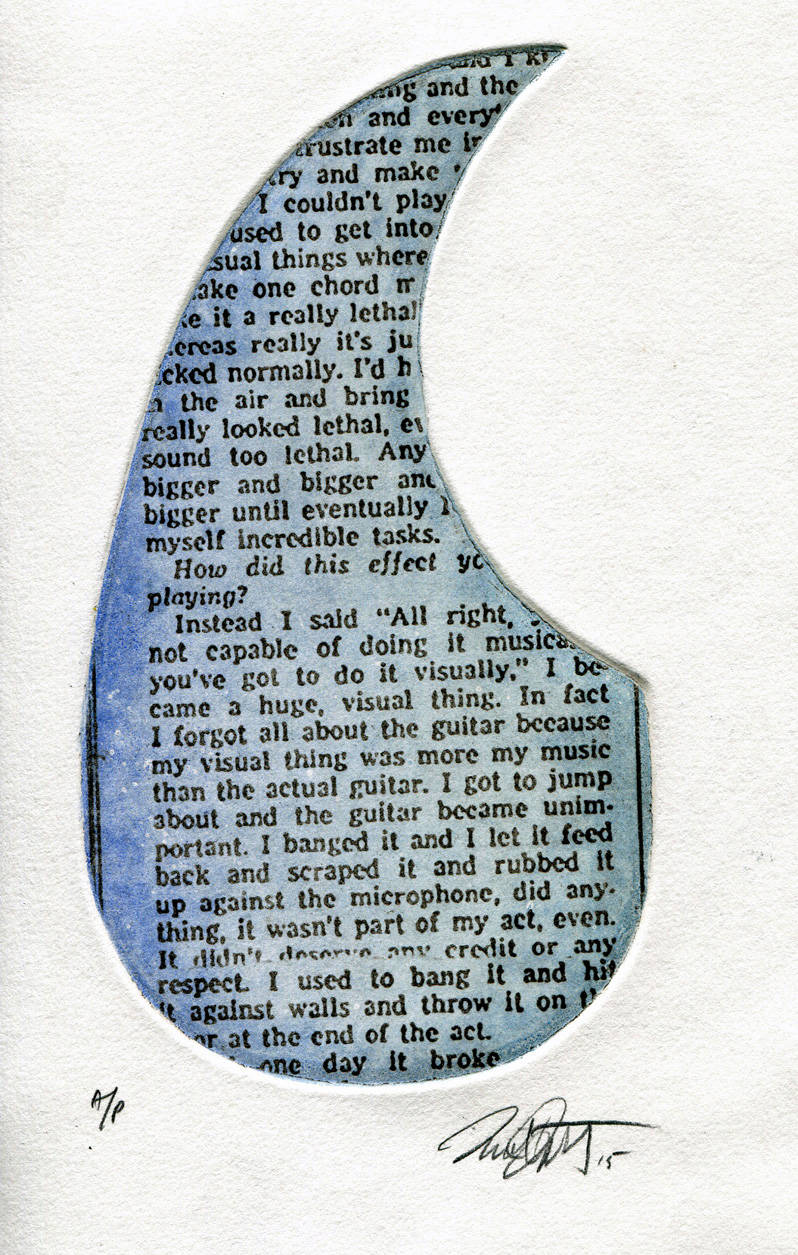 and I
and the
and every
frustrate me
try and make
I couldn't play
used to get into
things where
one chord
it a really lethal
really it's ju
normally. I'd h
the air and bring
really looked lethal, ev
sound too lethal. Any
bigger and bigger and
bigger until eventually I
myself incredible tasks.
How did this effect yo
playing?
Instead I said “All right,
not capable of doing it musica
you've got to do it visually,” I be-
came a huge, visual thing. In fact
I forgot all about the guitar because
my visual thing was more my music
than the actual guitar. I got to jump
about and the guitar became unim-
portant. I banged it and I let it feed
back and scraped it and rubbed it
up against the microphone, did any-
thing, it wasn't part of my act, even.
It didn't deserve any credit or any
respect. I used to bang it and hit
it against walls and throw it on th
or at the end of the act.
one day it broke
A/P
15